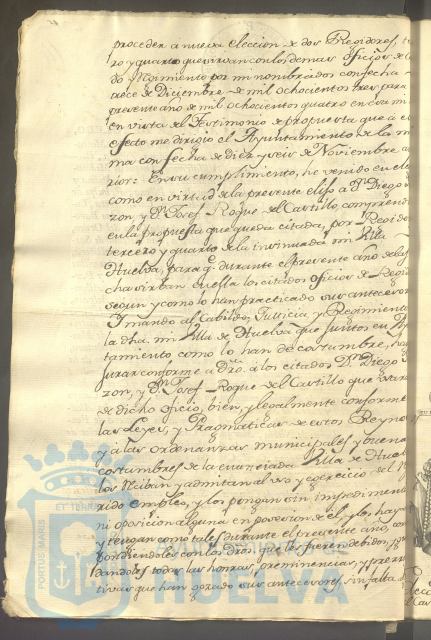 proceder a nueva eleccion de dos Regidores,
ro y quarto que sirvan con los demas oficios de
do Nacimiento por mi nombrados con fecha
rece de Diciembre de mil ochocientos tres para
presente año de mil ochocientos quatro en cuia
en vista del Testimonio de propuesta que a
efecto me dirigio el Ayuntamiento de la m
ma con fecha de diez y seis de Noviembre a
rior: En su cumplimiento, he venido en ele
como en virtud de la presente elijo a Dn. Diego
zon, y Dn. Josef Roque del Castillo, comprend
en la propuesta que queda citada, por Regido
tercero y quarto de la insinuada mi Villa
Huelva, para q.e durante el presente año de la f
cha sirvan en ella los citados oficios de Regid
segun y como lo han practicado sus antecesor
Y mando al Cabildo, Justicia y Regimiento
la dha. mi Villa de Huelva que juntos en Ay
tamiento como lo han de costumbre,
jurar conforme a dro. a los citados Dn. Diego
zon, y Dn. Josef Roque del Castillo que usara
de dicho oficio, bien, y legalmente conforme
las Leyes, y Pragmaticas de estos Reyno
y a las ordenanzas municipales y buena
costumbres de la enunciada Villa de Huel
los reciban y admitan al uso y egercicio del
rido empleo, y los pongan sin impedimen
ni oposicion alguna en posesion de el, y los hay
y tengan como tales durante el presente año,
pondiendoles con los dros. que les fueren debidos, y
dandoles todas las honras, preeminencias, y prerro
tivas que han gozado sus antecesores, sin falta
ET TERRAE
PORTUS MARIS
HUELVA